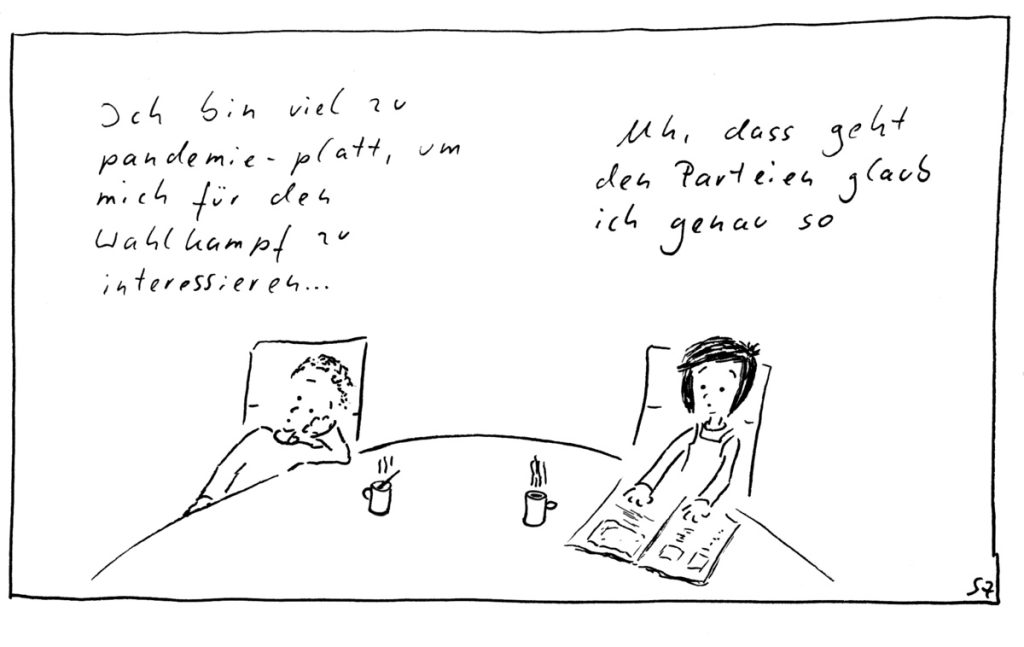 Ich bin viel zu
pandemie-platt, um
mich für den
Wahlkampf zu
interessieren...
Uh, dass geht
den Parteien glaub
ich genau so
SZ